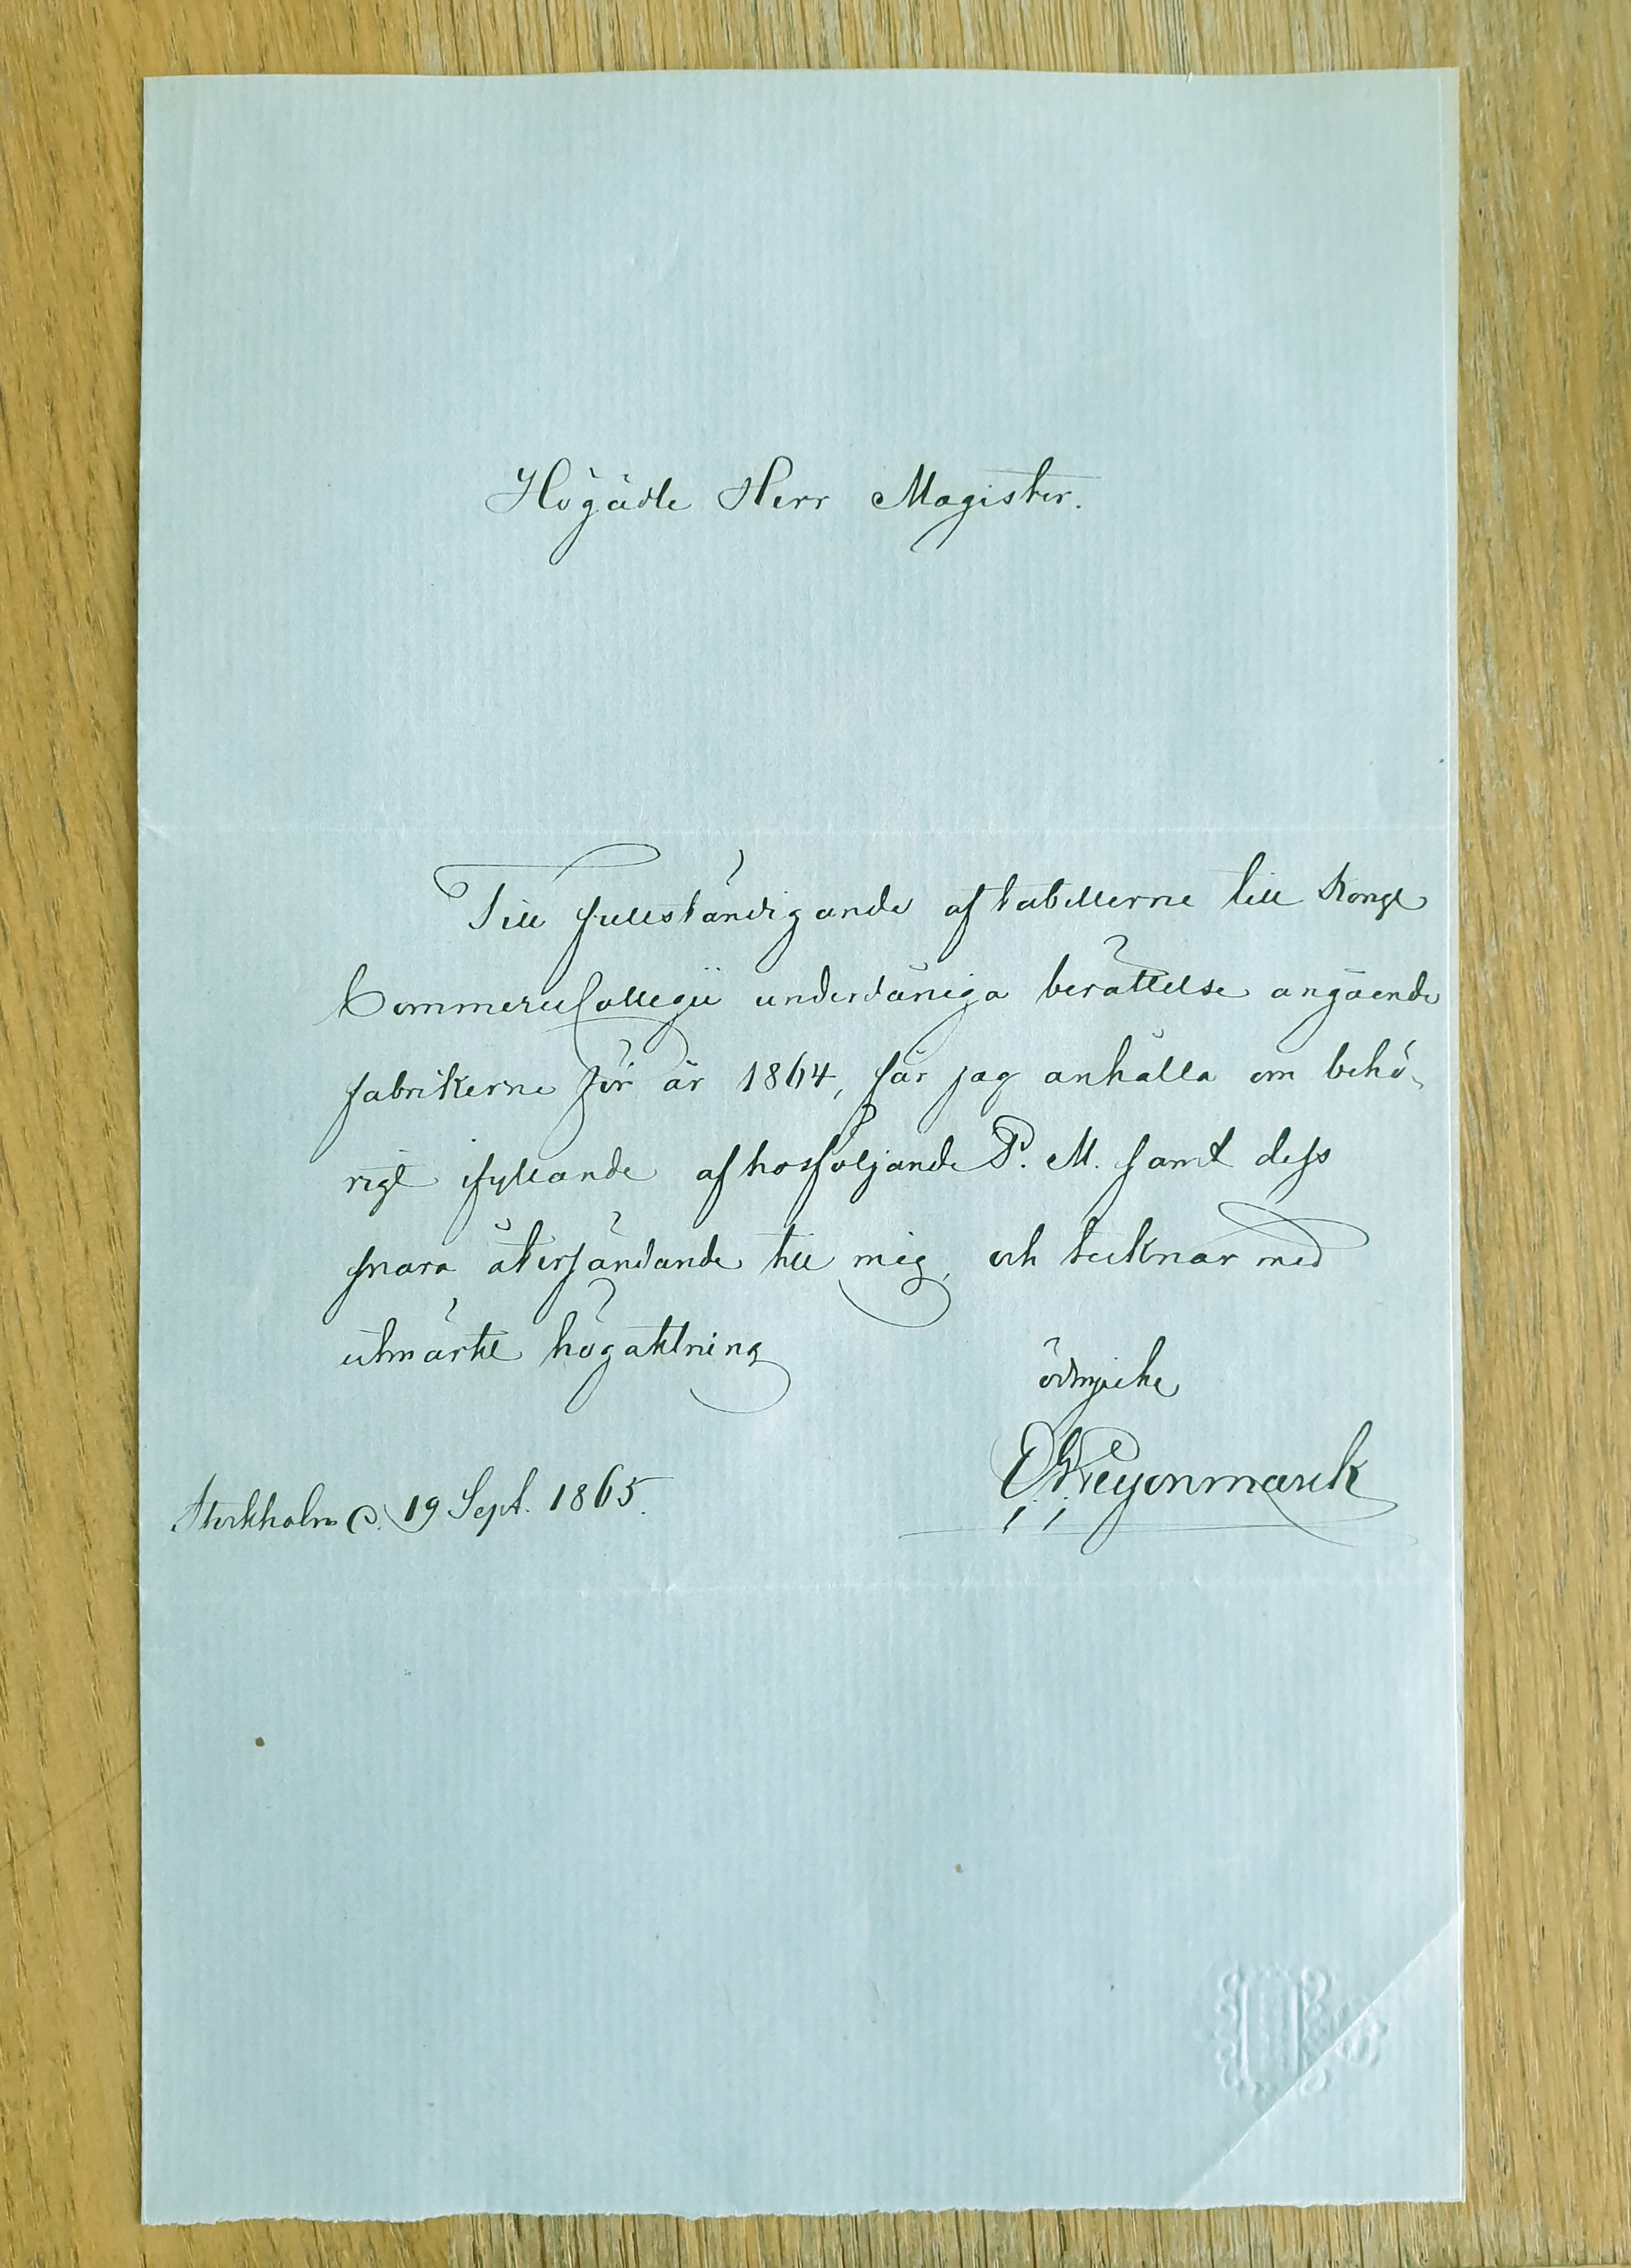 Högädle Herr Magister.
Till fullständigande af tabellerne till Kongl
CommerceCollegii underdåniga berättelse angående
fabrikerne för år 1864, får jag anhålla om behö-
rigt ifyllande af hosföljande P. M. samt dess
snara återsändande till mig, och tecknar med
utmärkt högaktning
ödmjuke
Stockholm d. 19 Sept. 1865.